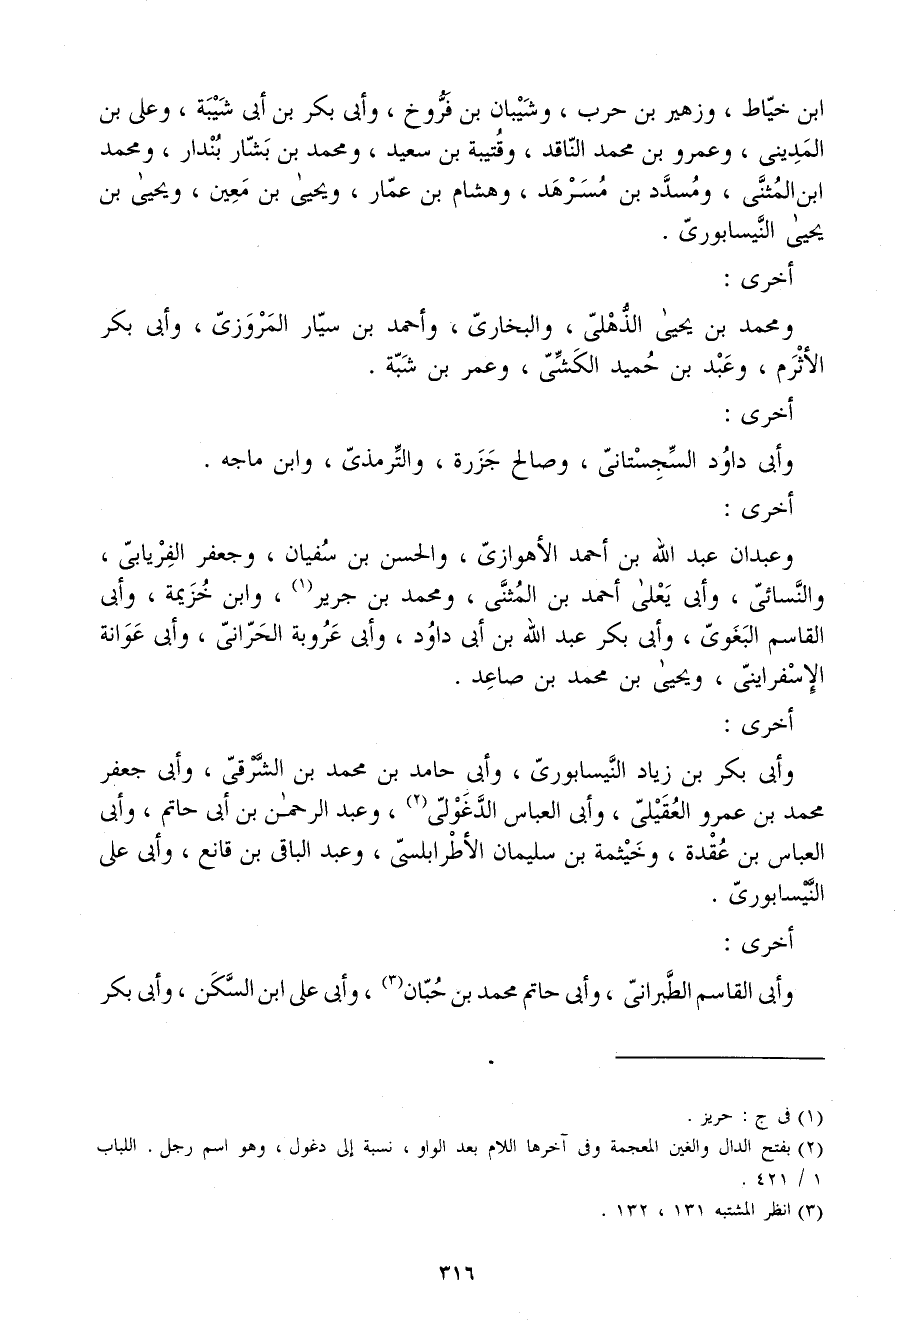 ابن خيّاط ، وزهير بن حرب ، وشَيْبان بن فَرُّوخ ، وأبى بكر بن أبى شَيْبَة ، وعلى بن
المَدِينى ، وعمرو بن محمد النّاقد ، وقُتيبة بن سعيد ، ومحمد بن بَشّار بُنْدار ، ومحمد
ابن المُثنَّى ، ومُسدَّد بن مُسَرْهَد ، وهشام بن عمّار ، ويحيىٰ بن مَعِين ، ويحيىٰ بن
يحيىٰ النَّيسابورىّ .
أخرى :
ومحمد بن يحيىٰ الذُّهْلىّ ، والبخارىّ ، وأحمد بن سيّار المَرْوَزىّ ، وأبى بكر
الأثْرَم ، وعَبْد بن حُميد الكَشِّىّ ، وعمر بن شَبّة .
أخرى :
وأبى داوُد السِّجِسْتانىّ ، وصالح جَزَرة ، والتِّرمذىّ ، وابن ماجه .
أخرى :
وعبدان عبد الله بن أحمد الأهوازىّ ، والحسن بن سُفيان ، وجعفر الفِرْيابىّ ،
والنَّسائىّ ، وأبى يَعْلىٰ أحمد بن المُثنَّى ، ومحمد بن جرير(١) ، وابن خُزَيمة ، وأبى
القاسم البَغَوىّ ، وأبى بكر عبد الله بن أبى داوُد ، وأبى عَرُوبة الحَرّانىّ ، وأبى عَوَانة
الإسْفراينىّ ، ويحيىٰ بن محمد بن صاعِد .
أخرى :
وأبى بكر بن زياد النَّيسابورىّ ، وأبى حامد بن محمد بن الشَّرْقىّ ، وأبى جعفر
محمد بن عمرو العُقَيْلىّ ، وأبى العباس الدَّغَوْلىّ(٢) ، وعبد الرحمٰن بن أبى حاتم ، وأبى
العباس بن عُقْدة ، وخَيْثمة بن سليمان الأطْرابلسىّ ، وعبد الباقى بن قانع ، وأبى على
النَّيْسابورىّ .
أخرى :
وأبى القاسم الطَّبرانىّ ، وأبى حاتم محمد بن حُبّان(٣) ، وأبى على ابن السَّكَن ، وأبى بكر
(١) فى ج : حريز .
(٢) بفتح الدال والغين المعجمة وفى آخرها اللام بعد الواو ، نسبة إلى دغول ، وهو اسم رجل . اللباب
١ / ٤٢١ .
(٣) انظر المشتبه ١٣١ ، ١٣٢ .
٣١٦